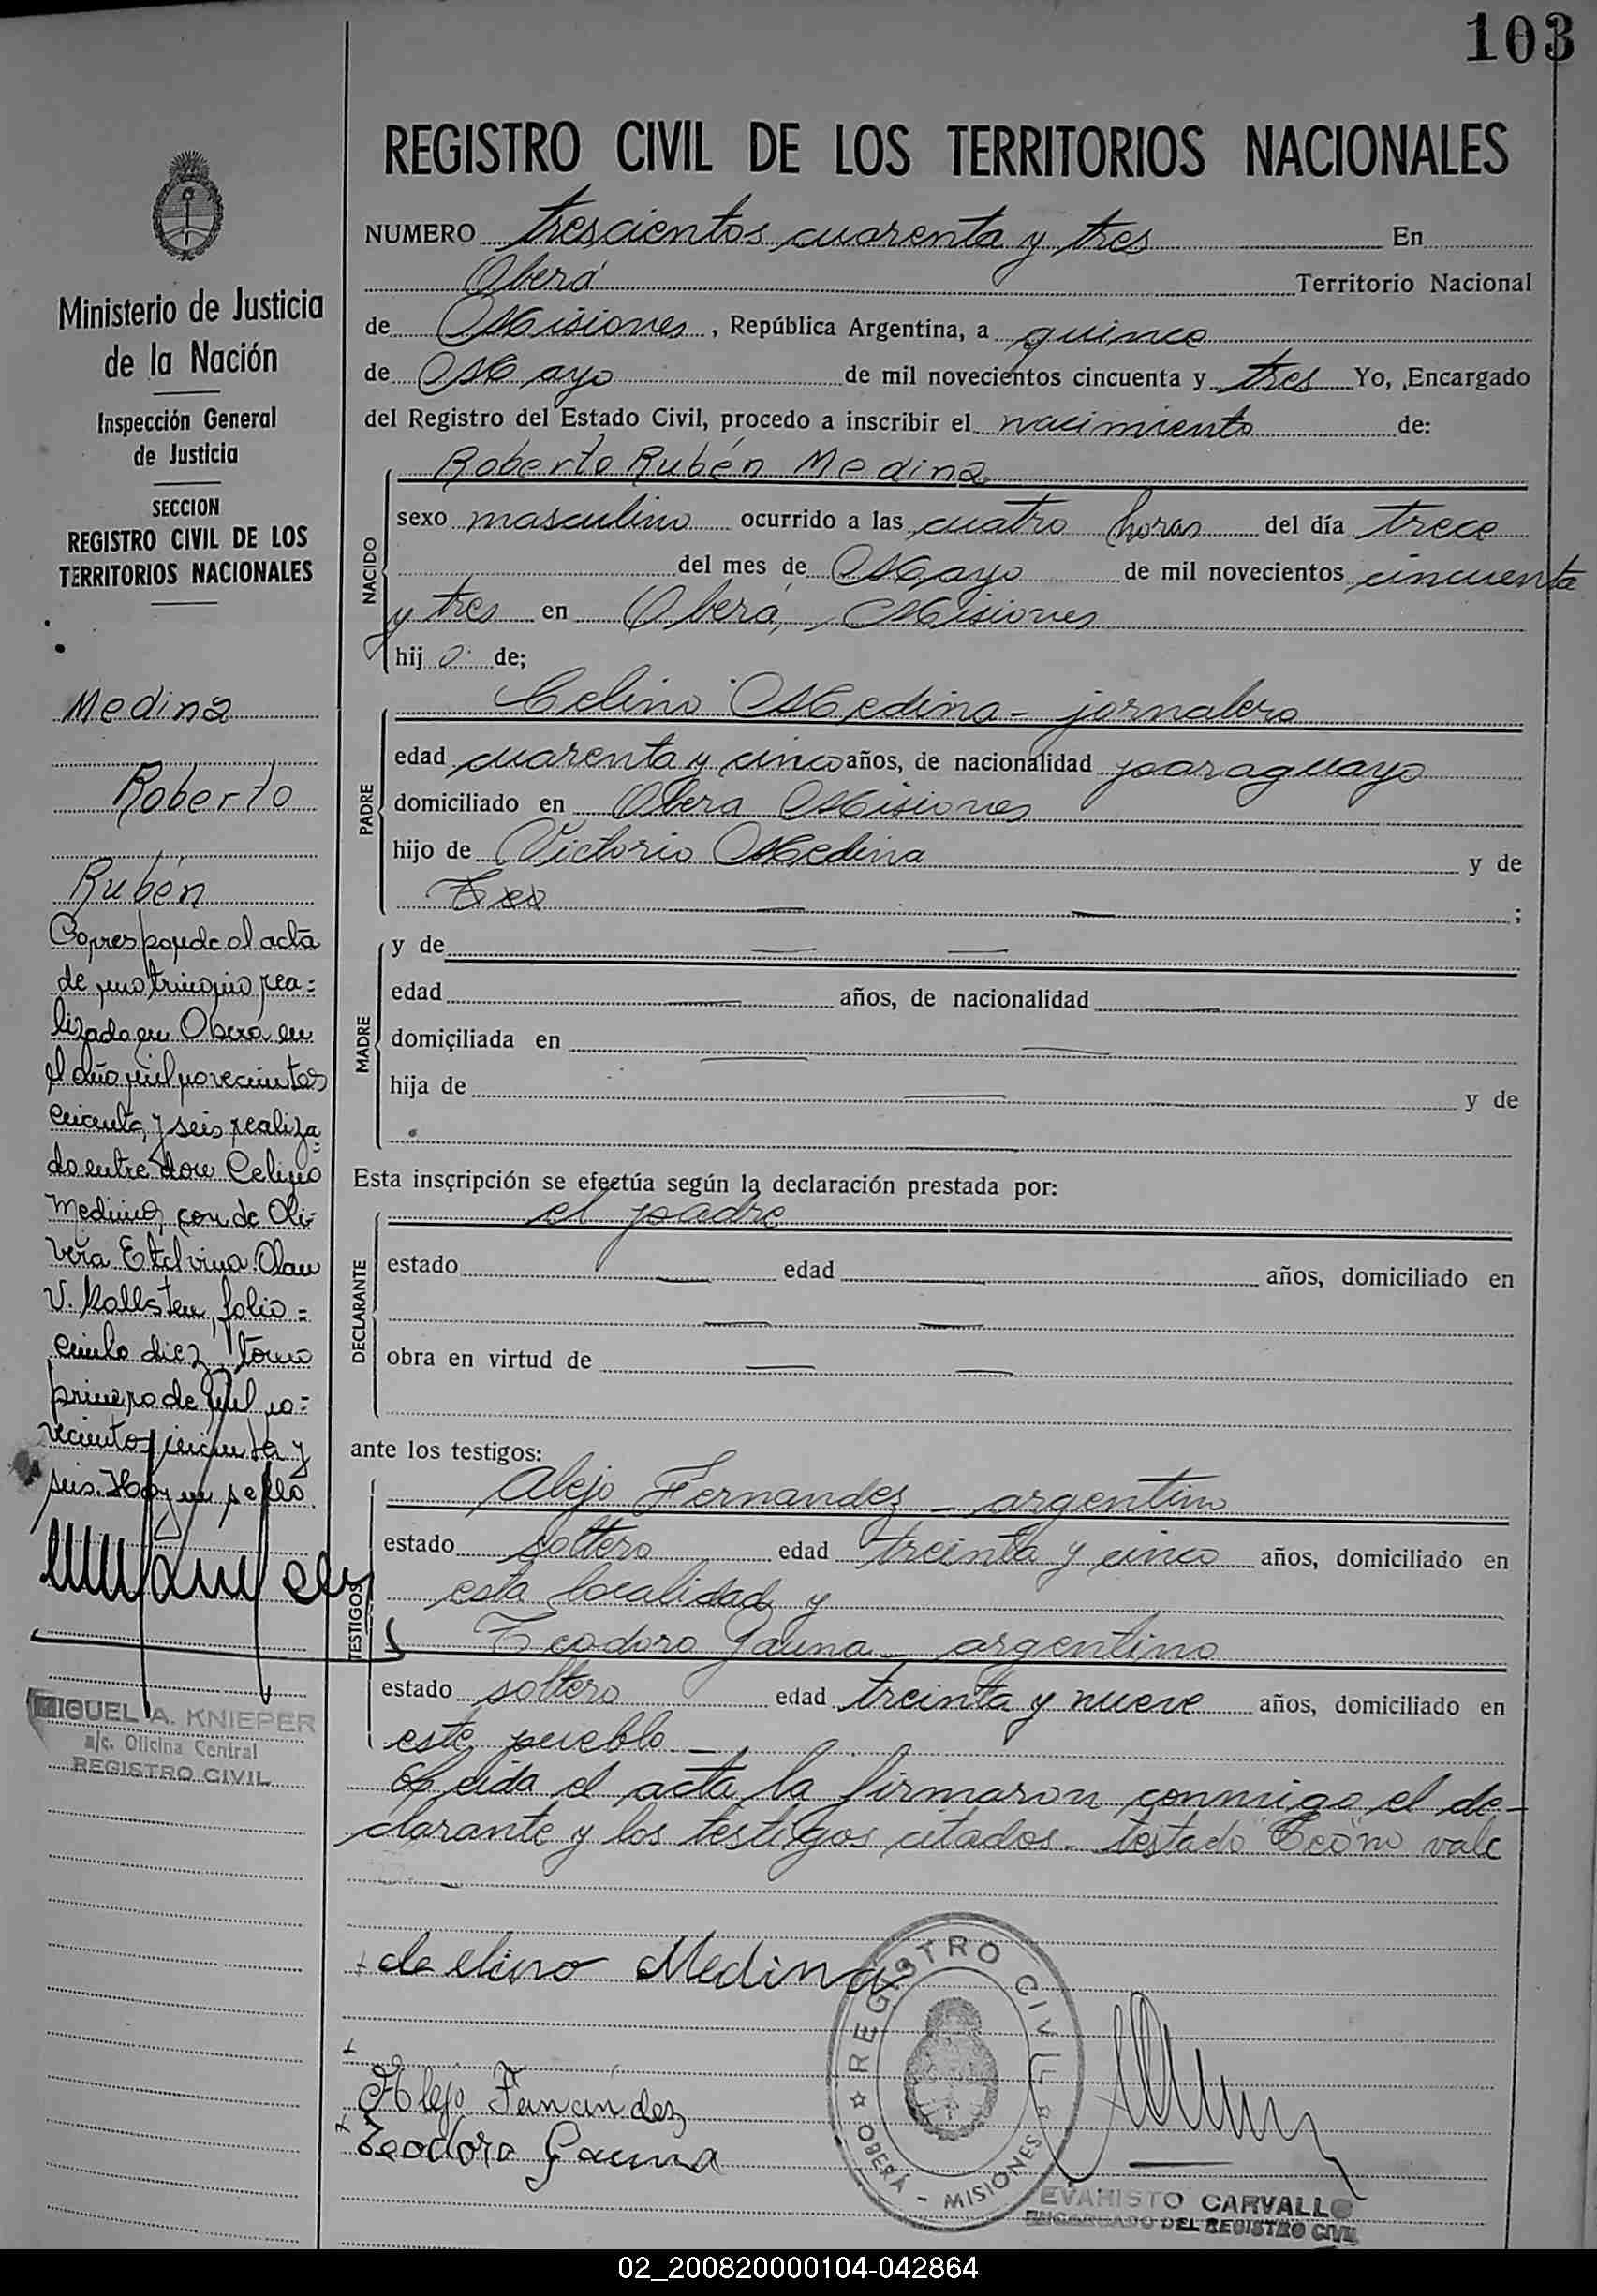 103
REGISTRO CIVIL DE LOS TERRITORIOS NACIONALES
Ministerio de Justicia
de la Nación
Inspección General
de Justicia
SECCION
REGISTRO CIVIL DE LOS
TERRITORIOS NACIONALES
Medina
Roberto
Rubén
Corresponde al acta
de matrimonio rea=
lizado en Obera en
el año mil novecientos
cincuenta y seis realiza
do entre don Celino
Medina, con de Oli-
vera Etelvina Olan
V. Kallsten, folio=
ciento diez, tomo
primero de mil no=
vecientos cincuenta y
seis. Hay un sello
MIGUEL A. KNIEPER
a/c. Oficina Central
REGISTRO CIVIL
NUMERO trescientos cuarenta y tres En
Oberá Territorio Nacional
de Misiones, República Argentina, a quince
de Mayo de mil novecientos cincuenta y tres Yo, Encargado
del Registro del Estado Civil, procedo a inscribir el nacimiento de:
NACIDO
Roberto Rubén Medina
sexo masculino ocurrido a las cuatro horas del día trece
del mes de Mayo de mil novecientos cincuenta
y tres en Oberá, Misiones
hij o de;
PADRE
Celino Medina - jornalero
edad cuarenta y cinco años, de nacionalidad paraguayo
domiciliado en Obera Misiones
hijo de Victorio Medina y de
;
MADRE
y de
edad años, de nacionalidad
domiciliada en
hija de y de
Esta inscripción se efectúa según la declaración prestada por:
DECLARANTE
el padre
estado edad años, domiciliado en
obra en virtud de
ante los testigos:
TESTIGOS
Alejo Fernandez - argentino
estado soltero edad treinta y cinco años, domiciliado en
esta localidad y
Teodoro Gauna - argentino
estado soltero edad treinta y nueve años, domiciliado en
este pueblo -
Leida el acta la firmaron conmigo el de-
clarante y los testigos citados - testado "Teo" no vale
Celino Medina
Alejo Fernández
Teodoro Gauna
REGISTRO CIVIL
OBERÁ - MISIONES
EVARISTO CARVALLO
ENCARGADO DEL REGISTRO CIVIL
02_200820000104-042864